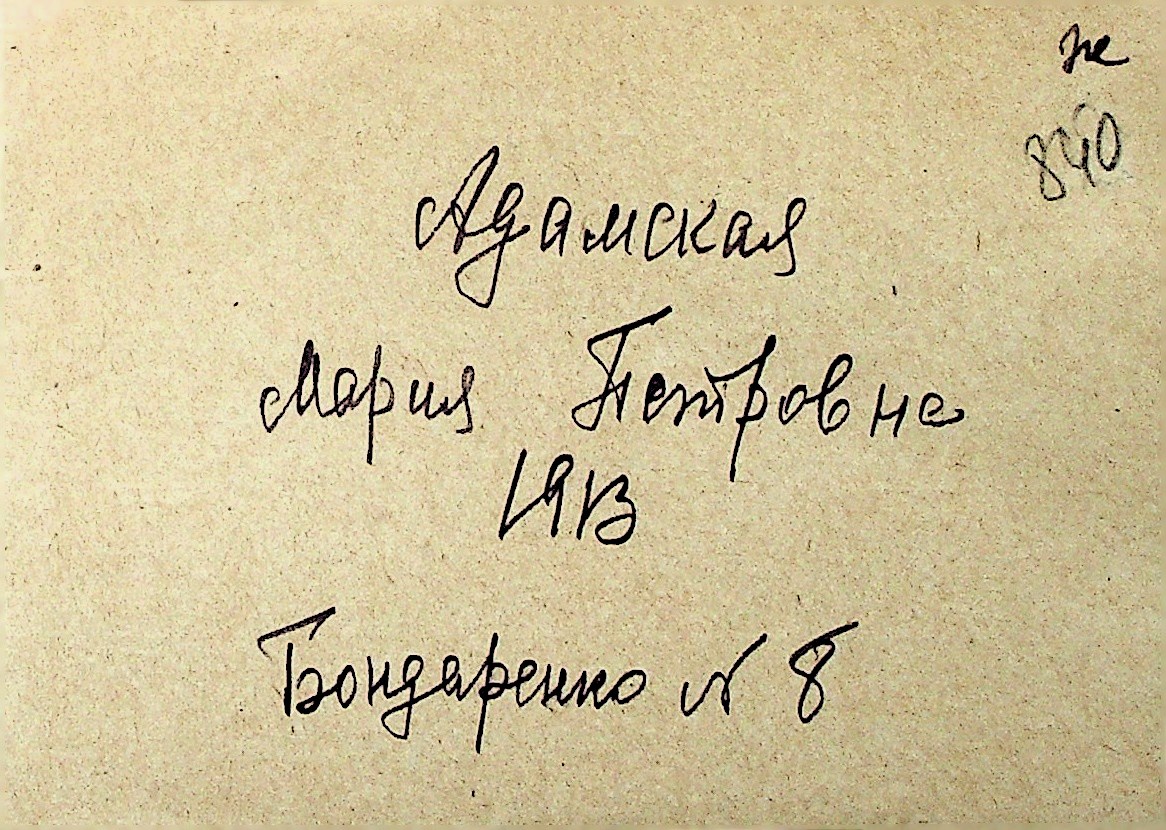 не
840
Адамская
Мария Петровна
ИЯВ
Бондаренко № 8